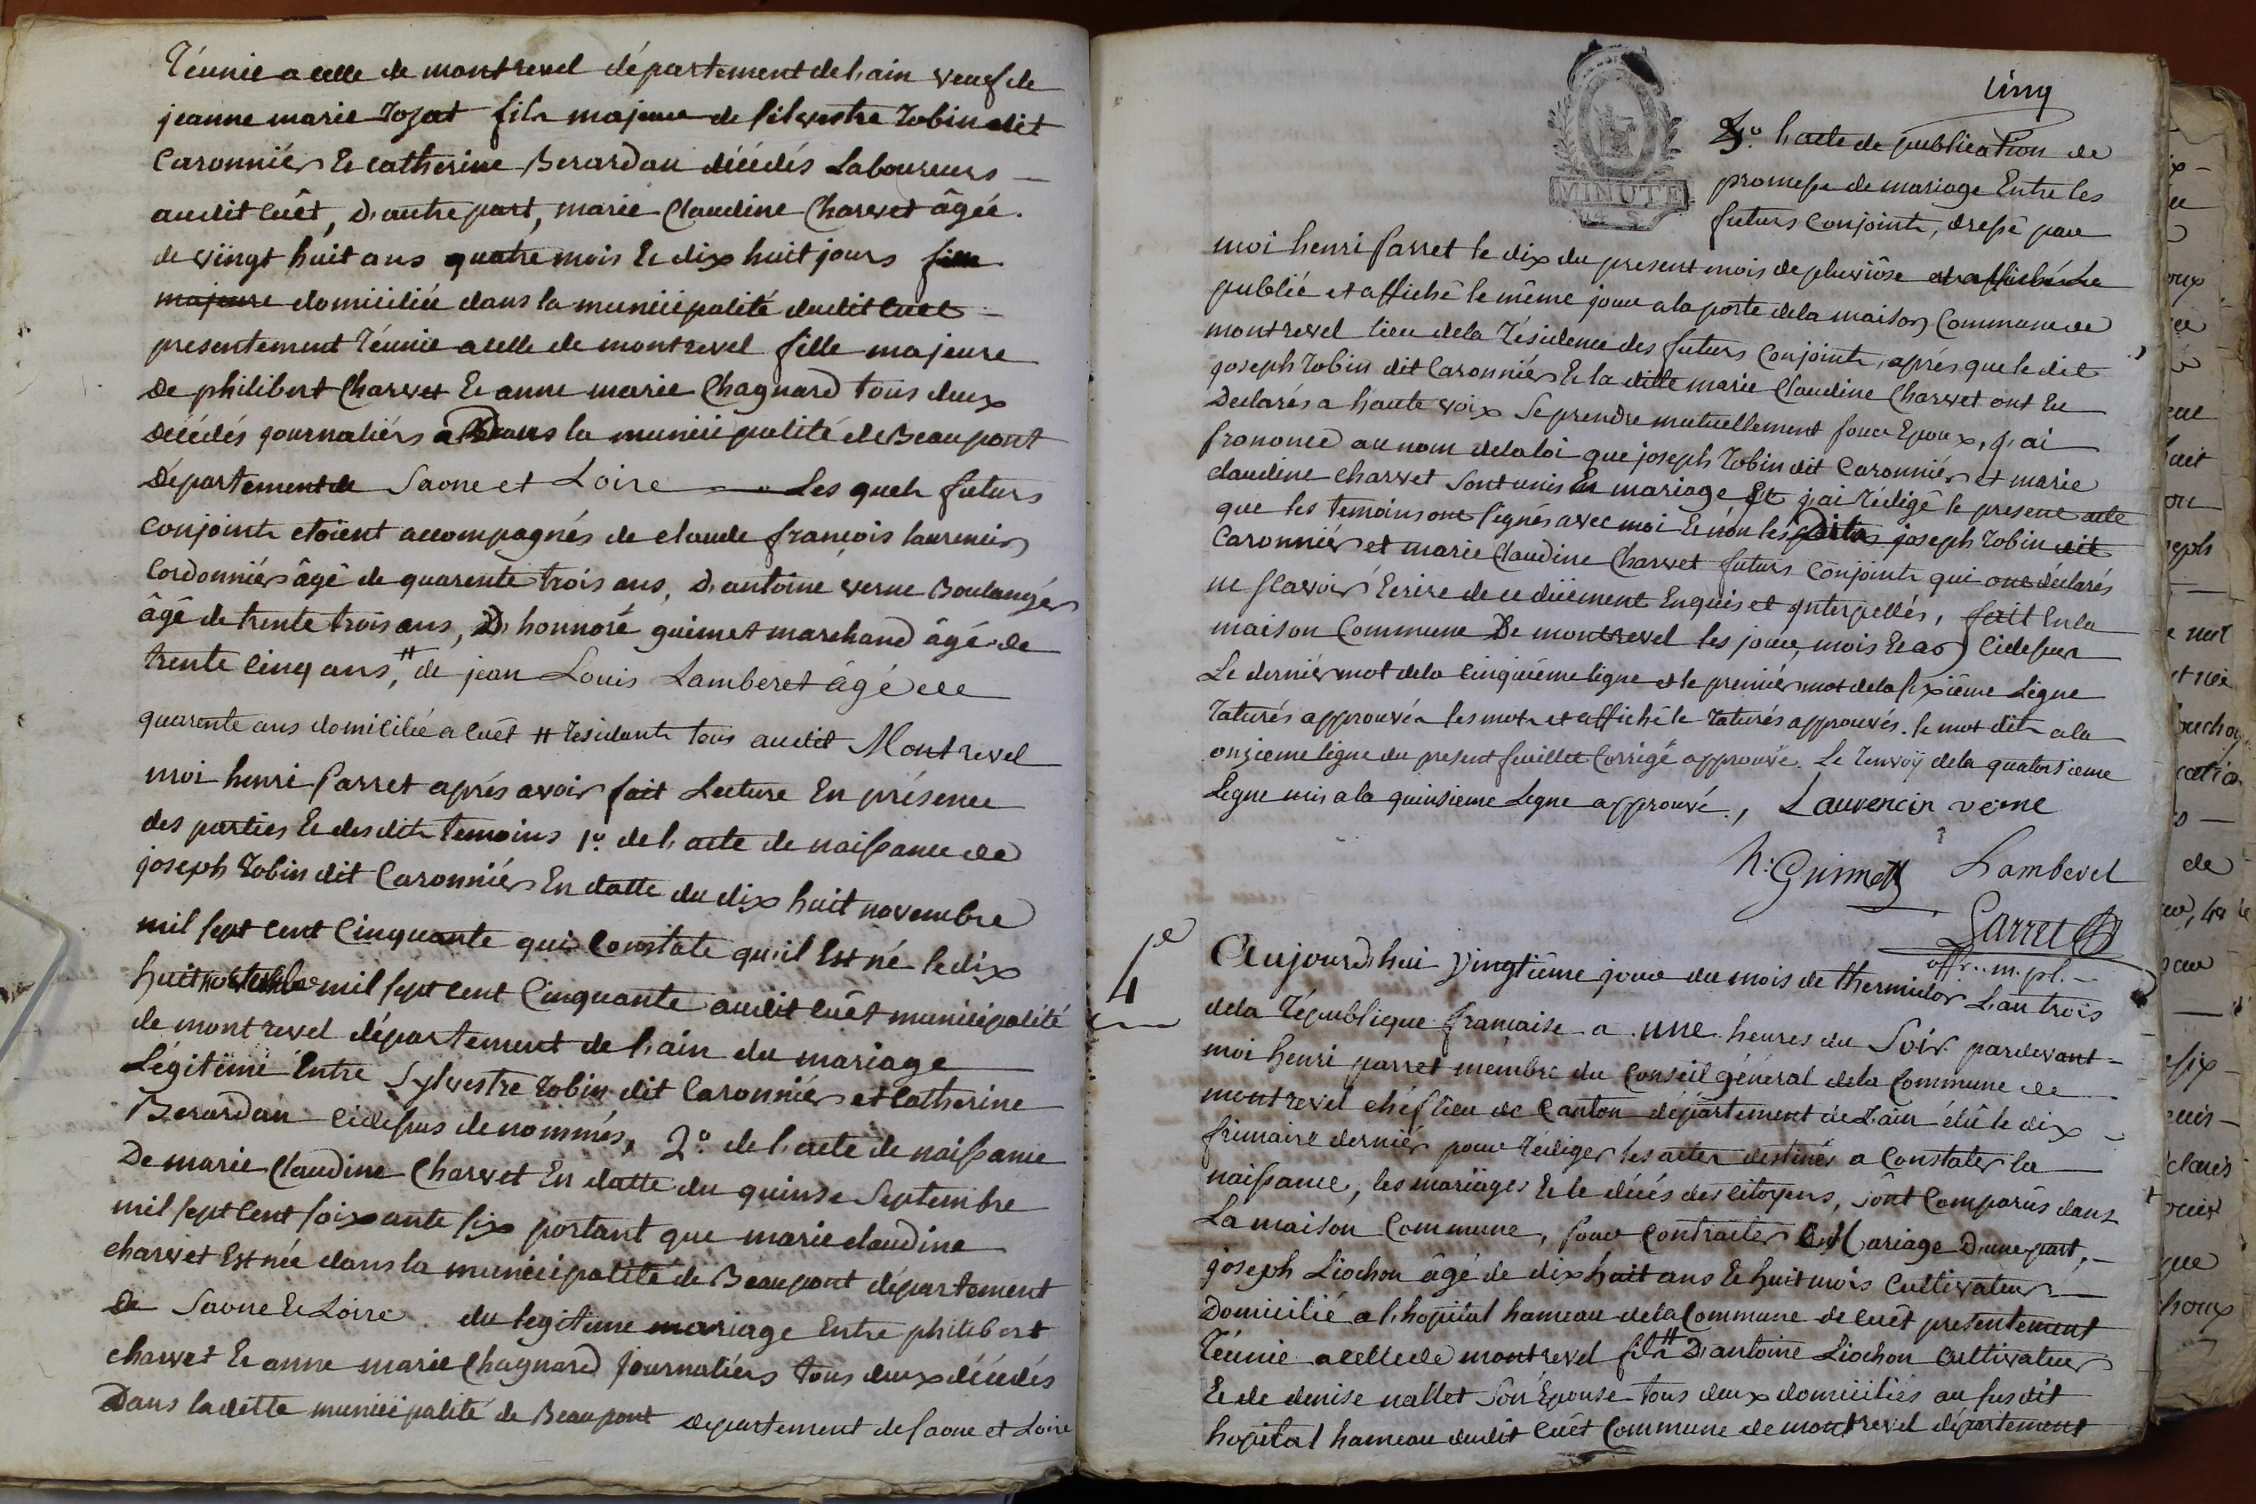 réunie a celle de montrevel département de l'ain veuf de
jeanne marie rozat fils majeur de silvestre robin dit
Caronnier & catherine Berardan décédés Laboureurs —
audit cuêt, d'autre part, marie Claudine Charvet âgée
de vingt huit ans quatre mois & dix huit jours fille
majeure domiciliée dans la municipalité dudit cuet —
presentement réunie a celle de montrevel fille majeure
De philibert Charvet & anne marie Chagnard tous deux
décédés journaliérs dans la municipalité de Beaupont
Département de Saone et Loire — Les quels futurs
Conjoints etoient accompagnés de claude françois laurencin
Cordonniér âgé de quarente trois ans, d'antoine verne Boulangér
âgé de trente trois ans, D'honnoré guimet marchand âgé de
trente cinq ans, # de jean Louis Lamberet âgé de
quarente ans domicilié a cuêt # residants tous audit Montrevel
moi henri Parret aprés avoir fait Lecture En présence
des parties & desdits temoins 1.º de l'acte de naissance de
joseph robin dit Caronniér En datte du dix huit novembre
mil sept cent Cinquante qui Constate qu'il Est né le dix
huit novembre mil sept cent Cinquante audit cuêt municipalité
de montrevel département de l'ain du mariage
Légitime Entre Sylvestre robin dit Caronniér et Catherine
Berardan cidessus denommés, 2.º de l'acte de naissance
De marie Claudine Charvet En datte du quinse Septembre
mil sept Cent soixante six portant que marie claudine
charvet Est née dans la municipalité de Beaupont département
de Saone & Loire du legitime mariage Entre philibert
charvet & anne marie Chagnard journaliérs tous deux décédés
Dans laditte municipalité de Beaupont departement de saone et Loire
cinq
MINUTE
3.º l'acte de publication de
promesse de mariage Entre les
futurs Conjoints, dressé par
moi henri parret le dix du present mois de pluviôse et affiché le
publié et affiché le même jour a la porte de la maison Commune de
montrevel lieu de la résidence des futurs Conjoints, aprés que le dit
joseph robin dit Caronniér & la ditte marie Claudine Charvet ont Eu
Declarés a haute voix se prendre mutuellement pour Epoux, j'ai
prononcé au nom de la loi que joseph robin dit Caronniér et marie
claudine charvet sont unis En mariage Et j'ai rédigé le present acte
que les temoins ont signés avec moi & non les dits joseph robin dit
Caronniér et marie Claudine Charvet futurs Conjoints qui ont déclarés
ne sçavoir Ecrire de ce düement Enquis et interpellés, fait En la
maison Commune De montrevel les jour, mois & an cidessus
Le derniér mot de la cinquiéme ligne et le premiér mot de la sixiéme Ligne
raturés approuvés les mots et affiché le raturés approuvés. le mot dits a la
onzieme ligne du present feuillet Corrigé approuvé. Le renvoÿ de la quatorsieme
Ligne mis a la quinsieme Ligne approuvé, Laurencin verne
h. Guimet Lamberel
Parret
off.. m. pl. —
4e
Aujourd'hui vingtiéme jour du mois de thermidor L'an trois
de la république française a une heures du Soir pardevant —
moi henri parret membre du Conseil général de la Commune de
montrevel chéf lieu de Canton département de L'ain élû le dix —
frimaire dernier pour rédiger les actes destinés a Constater la
naissance, les mariages & le décés des citoyens, sont Comparûs dans
La maison Commune, pour contracter Mariage D'une part, —
joseph Liochon âgé de dix huit ans & huit mois Cultivateur —
Domicilié a l'hopital hameau de la Commune de cuêt presentement
réunie a celle de montrevel fils # D'antoine Liochon Cultivateur
& de denise nallet son Epouse tous deux domiciliés au susdit
hopital hameau dudit cuêt Commune de montrevel département